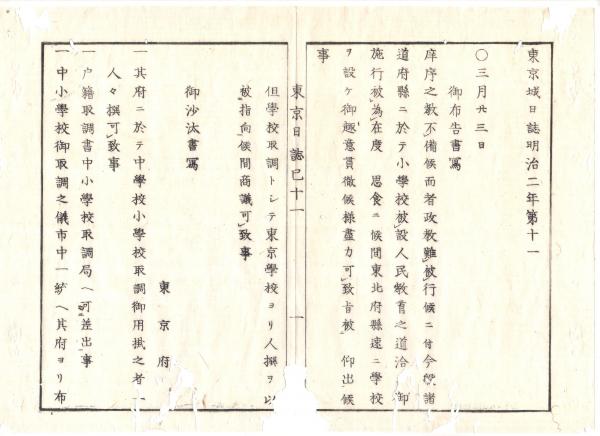 東京城日誌明治二年第十一
〇三月廿三日
御布告書寫
庠序之敎不備候而者政敎難被行候ニ付今般諸
道府縣ニ於テ小學校被設人民敎育之道洽御
施行被為在度 思食ニ候間東北府縣速ニ學校
ヲ設ケ御趣意貫徹候樣盡力可致旨被 仰出候
事
東京日誌巳十一 一
但學校取調トシテ東京學校ヨリ人撰ヲ以
被指向候間商議可致事
御沙汰書寫
東京府
一其府ニ於テ中學校小學校取調御用掛之者一
人々撰可致事
一戸籍取調書中小學校取調局ヘ可差出事
一中小學校御取調之儀市中一統ヘ其府ヨリ布